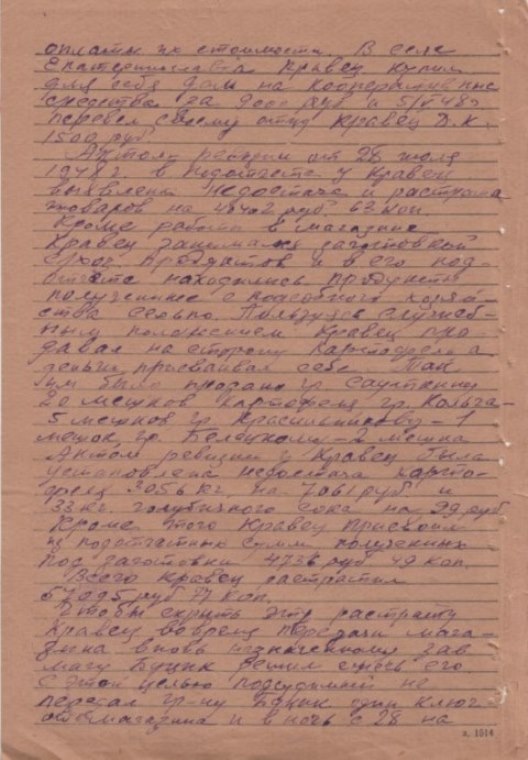 оплаты их стоимости. В селе
Екатеринославка Кравец купил
для себя дом на кооперативные
средства за 9000 руб и 5/V 48г
перевел своему отцу Кравец Д.К.
1500 руб
Актом ревизии от 28 июля
1948 г. в подотчете у Кравец
выявлена недостача и растрата
товаров на 40402 руб. 63 коп
Кроме работы в магазине
Кравец занимался заготовкой
сельхоз. продуктов и в его под-
отчете находились продукты
полученные с подсобного хозяй-
ства сельпо. Пользуясь служеб-
ным положением Кравец про
давал на сторону картофель а
деньги присваивал себе Так
им было продано гр.
20 мешков картофеля, гр.
5 мешков гр. Красильникову - 1
мешок, гр. Белецкому - 2 мешка
Актом ревизии у Кравец была
установлена недостача карто-
феля 3056 кг, на 7061 руб и
33 кг. голубичного сока на 99 руб
Кроме этого Кравец присвоил
из подотчетных сумм полученных
под заготовки 4736 руб 49 коп.
Всего Кравец растратил
57095 руб 77 коп.
Чтобы скрыть эту растрату
Кравец во время передачи мага-
зина вновь назначенному зав
магу Буцик решил сжечь его
С этой целью подсудимый не
передал гр-ну Буцик один ключ
от магазина и в ночь с 28 на
з. 1514